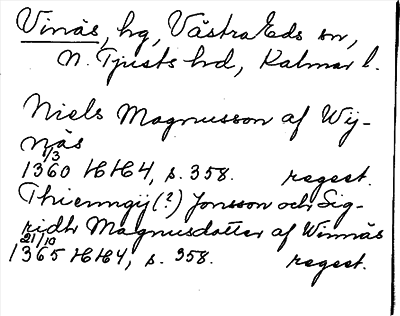 Vinäs, hg, Västra Eds sn,
N. Tjusts hd, Kalmar l.
Niels Magnusson af Wij-
näs
1/3
1360 HH4, s. 358. regest.
Thienngij (?) Jonsson och Sig-
ridh Magnusdotter af Winnäs
21/10
1365 HH4, s. 358. regest.